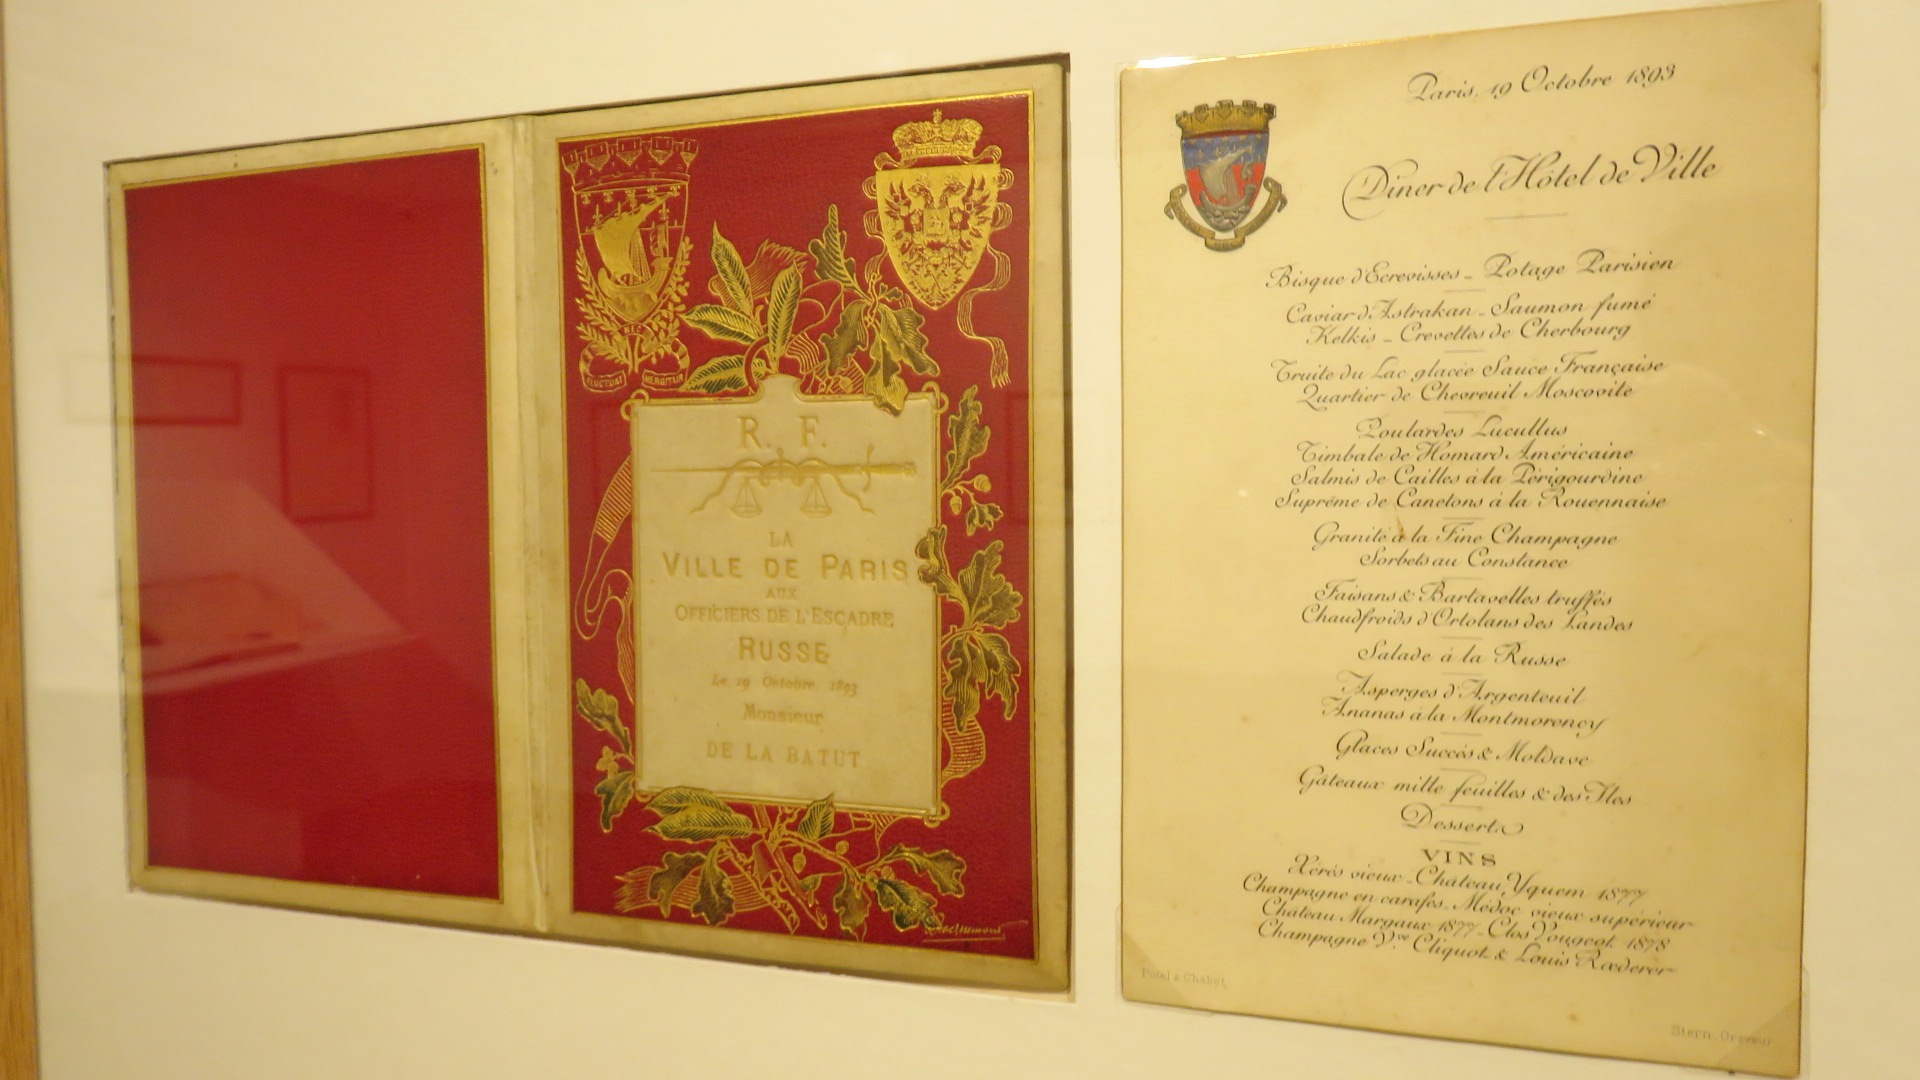 FLUCTUAT NEC MERGITUR
R. F.
LA
VILLE DE PARIS
AUX
OFFICIERS DE L'ESCADRE
RUSSE
Le 19 Octobre 1893
Monsieur
DE LA BATUT
Paris, 19 Octobre 1893
Diner de l'Hôtel de Ville
Bisque d'Ecrevisses - Potage Parisien
Caviar d'Astrakan - Saumon fumé
Kelkis - Crevettes de Cherbourg
Truite du Lac glacée Sauce Française
Quartier de Chevreuil Moscovite
Poulardes Lucullus
Timbale de Homard Américaine
Salmis de Cailles à la Périgourdine
Suprême de Canetons à la Rouennaise
Granité à la Fine Champagne
Sorbets au Constance
Faisans & Bartavelles truffés
Chaudfroids d'Ortolans des Landes
Salade à la Russe
Asperges d'Argenteuil
Ananas à la Montmorency
Glaces Succès & Moldave
Gâteaux mille feuilles & des Iles
Desserts
VINS
Xérès vieux - Château Yquem 1877
Champagne en carafes - Médoc vieux supérieur
Château Margaux 1877 - Clos Vougeot 1878
Champagne Vve Cliquot & Louis Rœderer
Potel & Chabot
Stern, Graveur